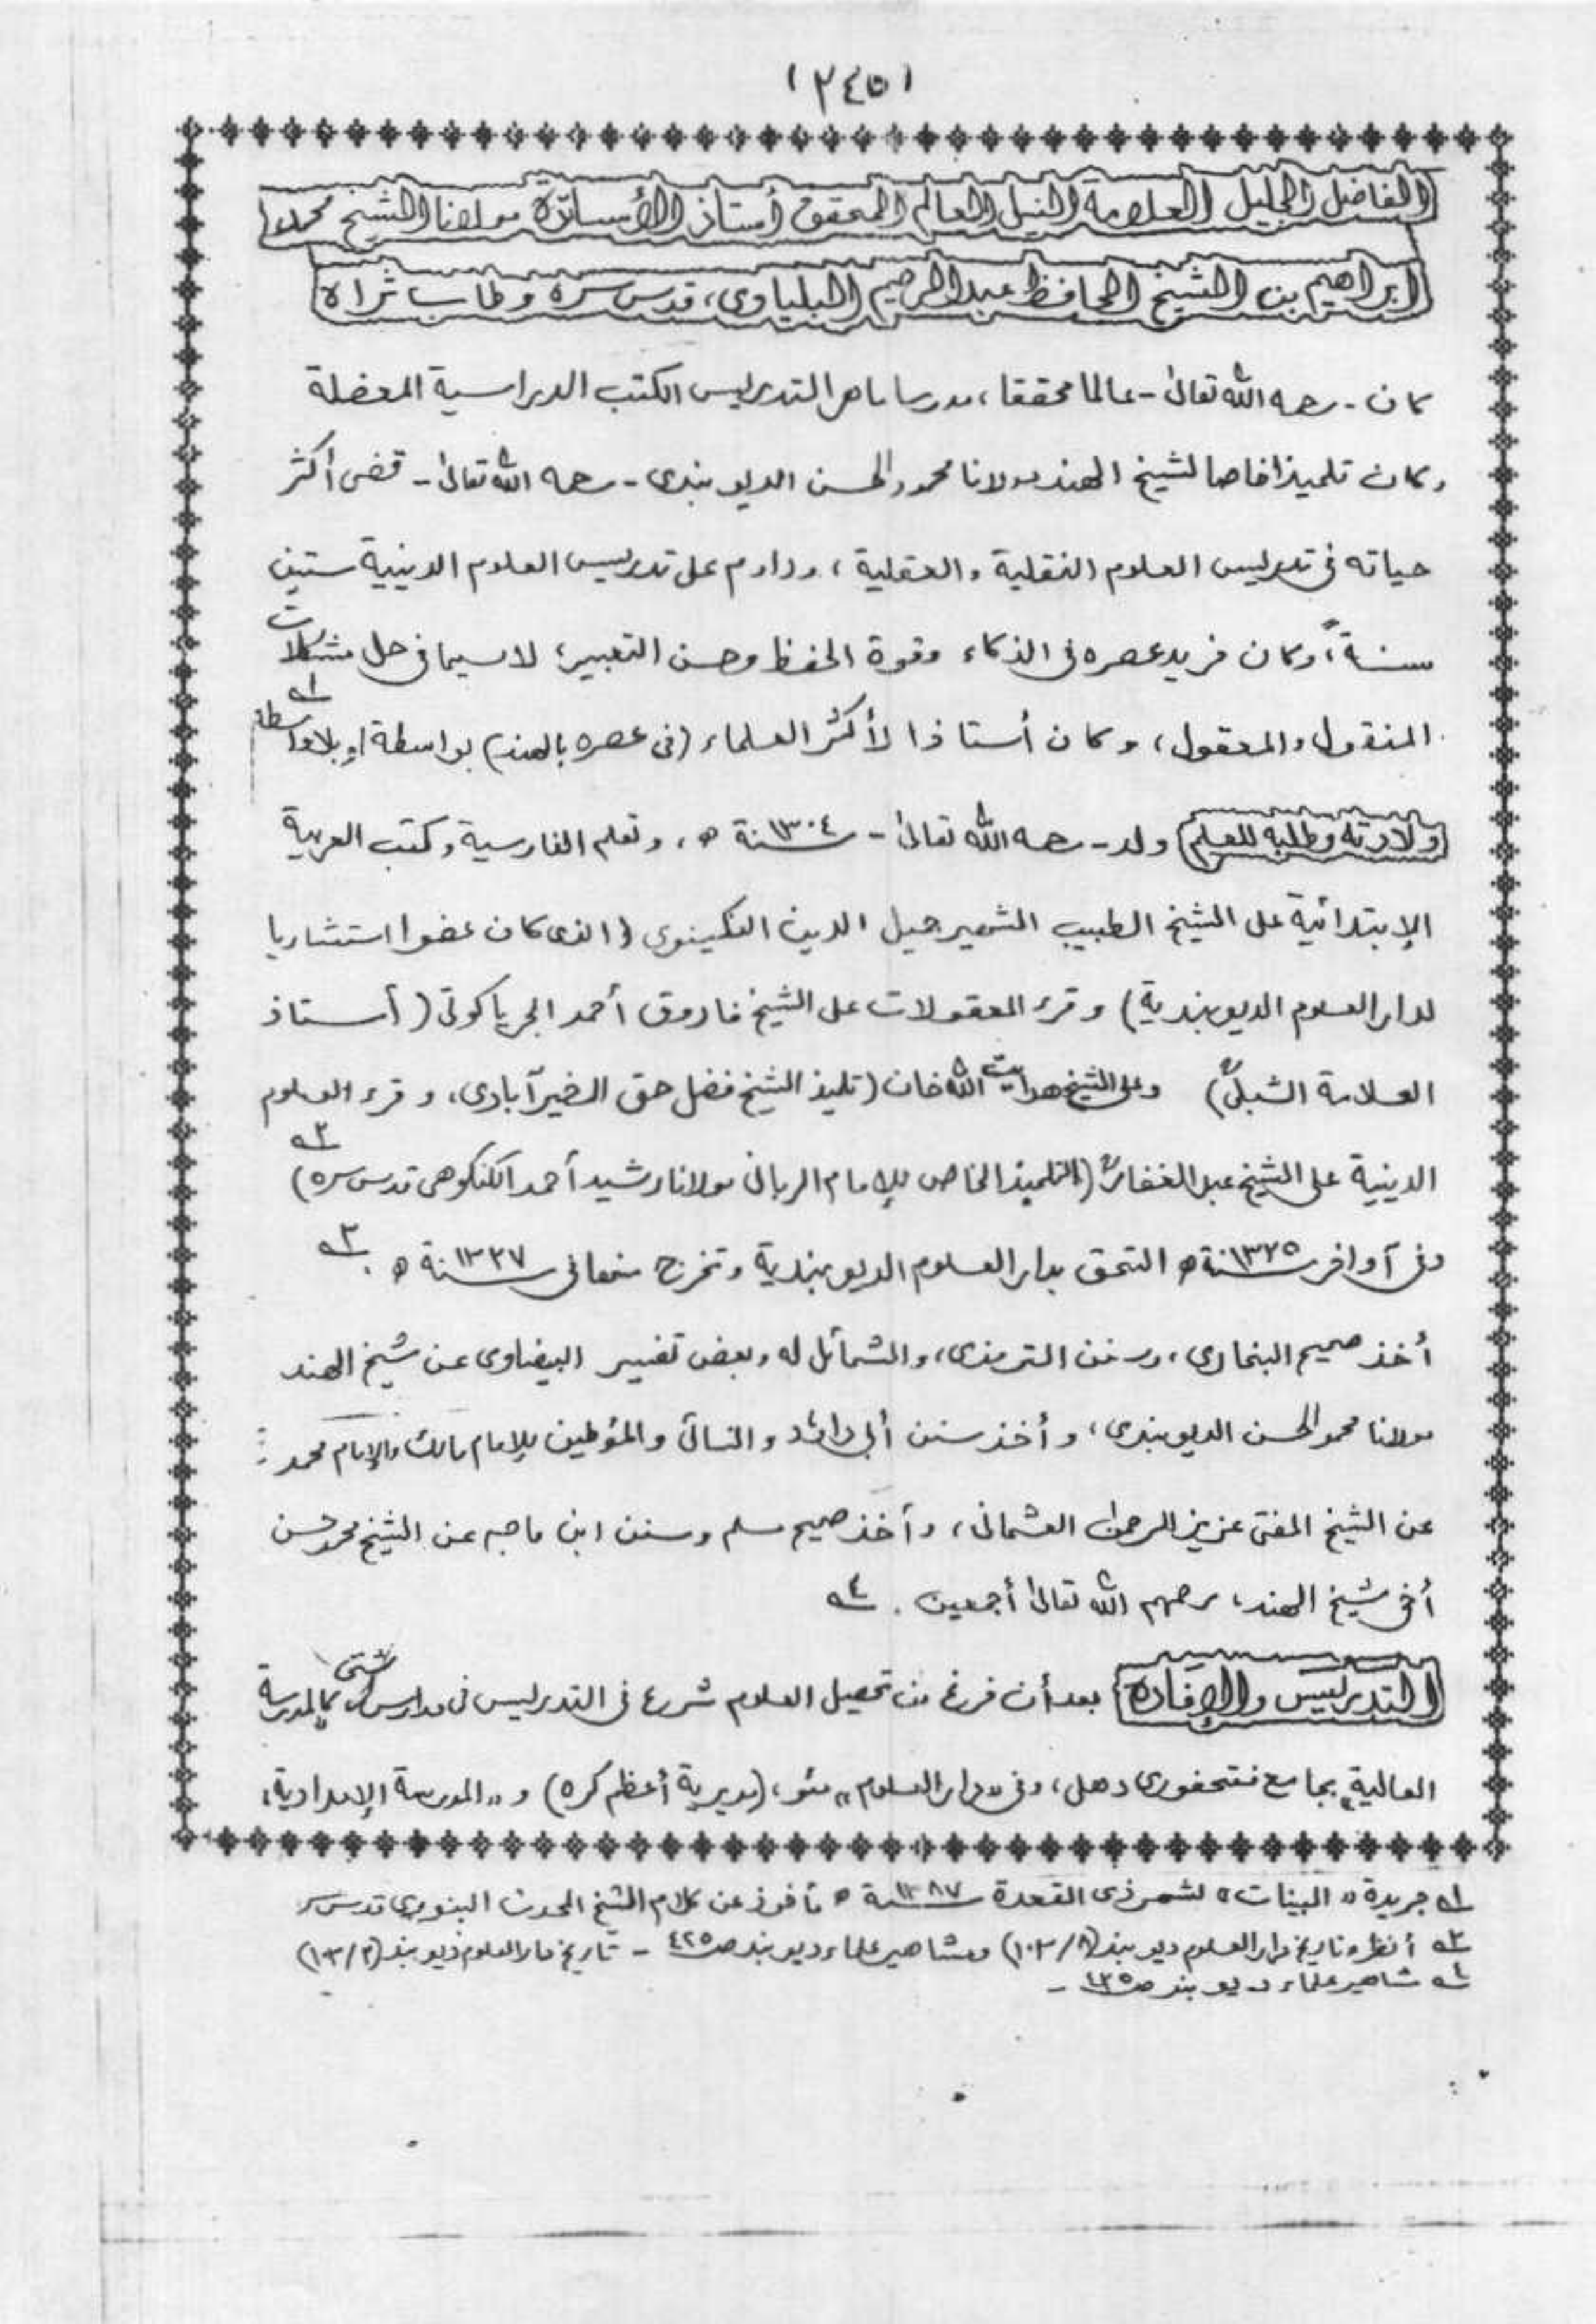 (٢٤٥)
الفاضل الجليل العلامة النبيل العالم المحقق أستاذ الأساتذة مولانا الشيخ محمد
ابراهيم بن الشيخ الحافظ عبدالرحيم البلياوى، قدس سره وطاب ثراه
كان - رحمه الله تعالىٰ - عالما محققا، مدرسا ماهرا لتدريس الكتب الدراسية المعضلة
وكان تلميذا خاصا لشيخ الهند مولانا محمود الحسن الديوبندى - رحمه الله تعالىٰ - قضى أكثر
حياته فى تدريس العلوم النقلية والعقلية، وداوم على تدريس العلوم الدينية ستين
سنة، وكان فريد عصره فى الذكاء وقوة الحفظ وحسن التعبير؛ لاسيما فى حل مشكلات
المنقول والمعقول، وكان أستاذا لأكثر العلماء (فى عصره بالهند) بواسطة او بلاواسطة ١ـه
ولادته وطلبه للعلم ولد - رحمه الله تعالىٰ - سنة ١٣٠٤ ه، وتعلم الفارسية وكتب العربية
الإبتدائية على الشيخ الطبيب الشهير جميل الدين النكينوى (الذى كان عضوا استشاريا
لدارالعلوم الديوبندية) وقرء المعقولات على الشيخ فاروق أحمد الجرياكوتى (أستاذ
العلامة الشبلىؒ) وعلى الشيخ هدايت الله خان (تلميذ الشيخ فضل حق الخيرآبادى، وقرء العلوم
الدينية على الشيخ عبدالغفارؒ (التلميذ الخاص للإمام الربانى مولانا رشيد أحمد الكنكوهى قدس سره) ٢ـه
وفى آواخر سنة ١٣٢٥ ه التحق بدارالعلوم الديوبندية وتخرج منها فى سنة ١٣٢٧ ه. ٣ـه
أخذ صحيح البخارى، وسنن الترمذى، والشمائل له وبعض تفسير البيضاوى عن شيخ الهند
مولانا محمود الحسن الديوبندى، وأخذ سنن أبى داؤد والنسائى والمؤطين للإمام مالك والإمام محمد
عن الشيخ المفتى عزيز الرحمن العثمانى، وأخذ صحيح مسلم وسنن ابن ماجه عن الشيخ محمد حسن
أخى شيخ الهند، رحمهم الله تعالىٰ أجمعين. ٤ـه
التدريس والإفادة بعد أن فرغ من تحصيل العلوم شرع فى التدريس فى مدارس شتى كالمدرسة
العالية بجامع فتحفورى دهلى، وفى "دارالعلوم" مئو، (مديرية أعظم كره) و"المدرسة الإمدادية"
١ـه جريدة "البينات" لشهر ذى القعدة سنة ١٣٨٧ ه مأخوذ عن كلام الشيخ المحدث البنورى قدس سره
٢ـه أنظر تاريخ دارالعلوم ديوبند ومشاهير علماء ديوبند ص ٤٢٥ - تاريخ دارالعلوم ديوبند (١٠٣/٢)
٤ـه مشاهير علماء ديوبند ص ٤٢٥ -